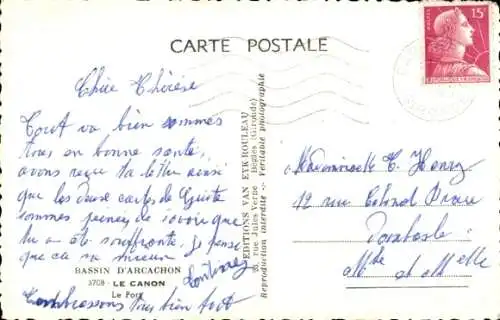 CARTE POSTALE
15F
Chère Thérèse
Tout va bien sommes
tous en bonne santé,
avons reçu ta lettre ainsi
que les deux cartes de
sommes peinés de savoir que
tu as été souffrante. Je pense
que ça va mieux
T'embrassons tous bien fort
BASSIN D'ARCACHON
3708 - LE CANON
Le Port
EDITIONS VAN EYK-ROULEAU
Rue Jules Verne Bègles (Gironde)
Reproduction interdite - Véritable photographie
Mademoiselle T. Henry
12 rue Colonel
Dombasle
Mthe et Mlle